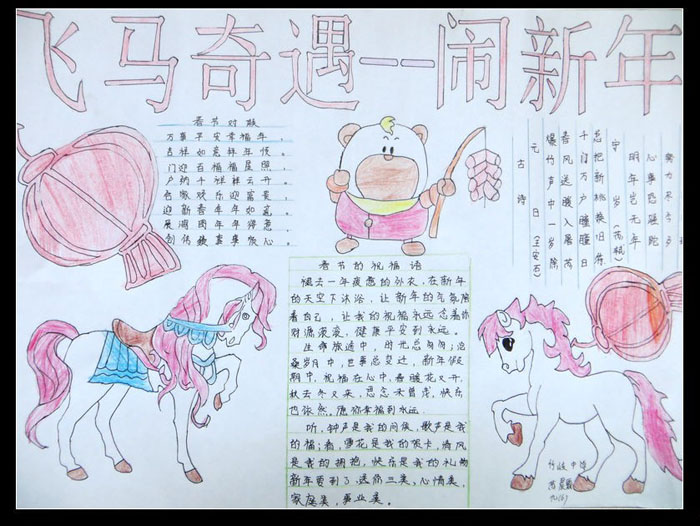 飞马奇遇——闹新年
春节对联
万事平安幸福年，
吉祥如意拜年顺。
门迎百福福星照，
户纳千祥祥云开。
合家欢乐迎富贵，
迎新春年年如意。
展鸿图年年得意，
古诗
元日(王安石)
爆竹声中一岁除
春风送暖入屠苏
千门万户瞳瞳日
总把新桃换旧符
守岁(苏轼)
明年岂无年
心事恐蹉跎
努力尽今夕
春节的祝福语
褪去一年疲惫的外衣，在新年
的天空下沐浴，让新年的气氛陪
着自己，让我的祝福永远念着你
健康平安到永远。
生命旅途中，时光总匆匆；沧
桑岁月中，世事总变迁，新年假
期中，祝福在心中，春暖花又开，
秋去冬又来，思念未曾老，快乐
也依然。愿你幸福到永远。
听，钟声是我的问候，歌声是我
的福；看，雪花是我的贺卡，清风
是我的拥抱，快乐是我的礼物
新年要到了，送你三类，心情类，
家庭类，事业类。